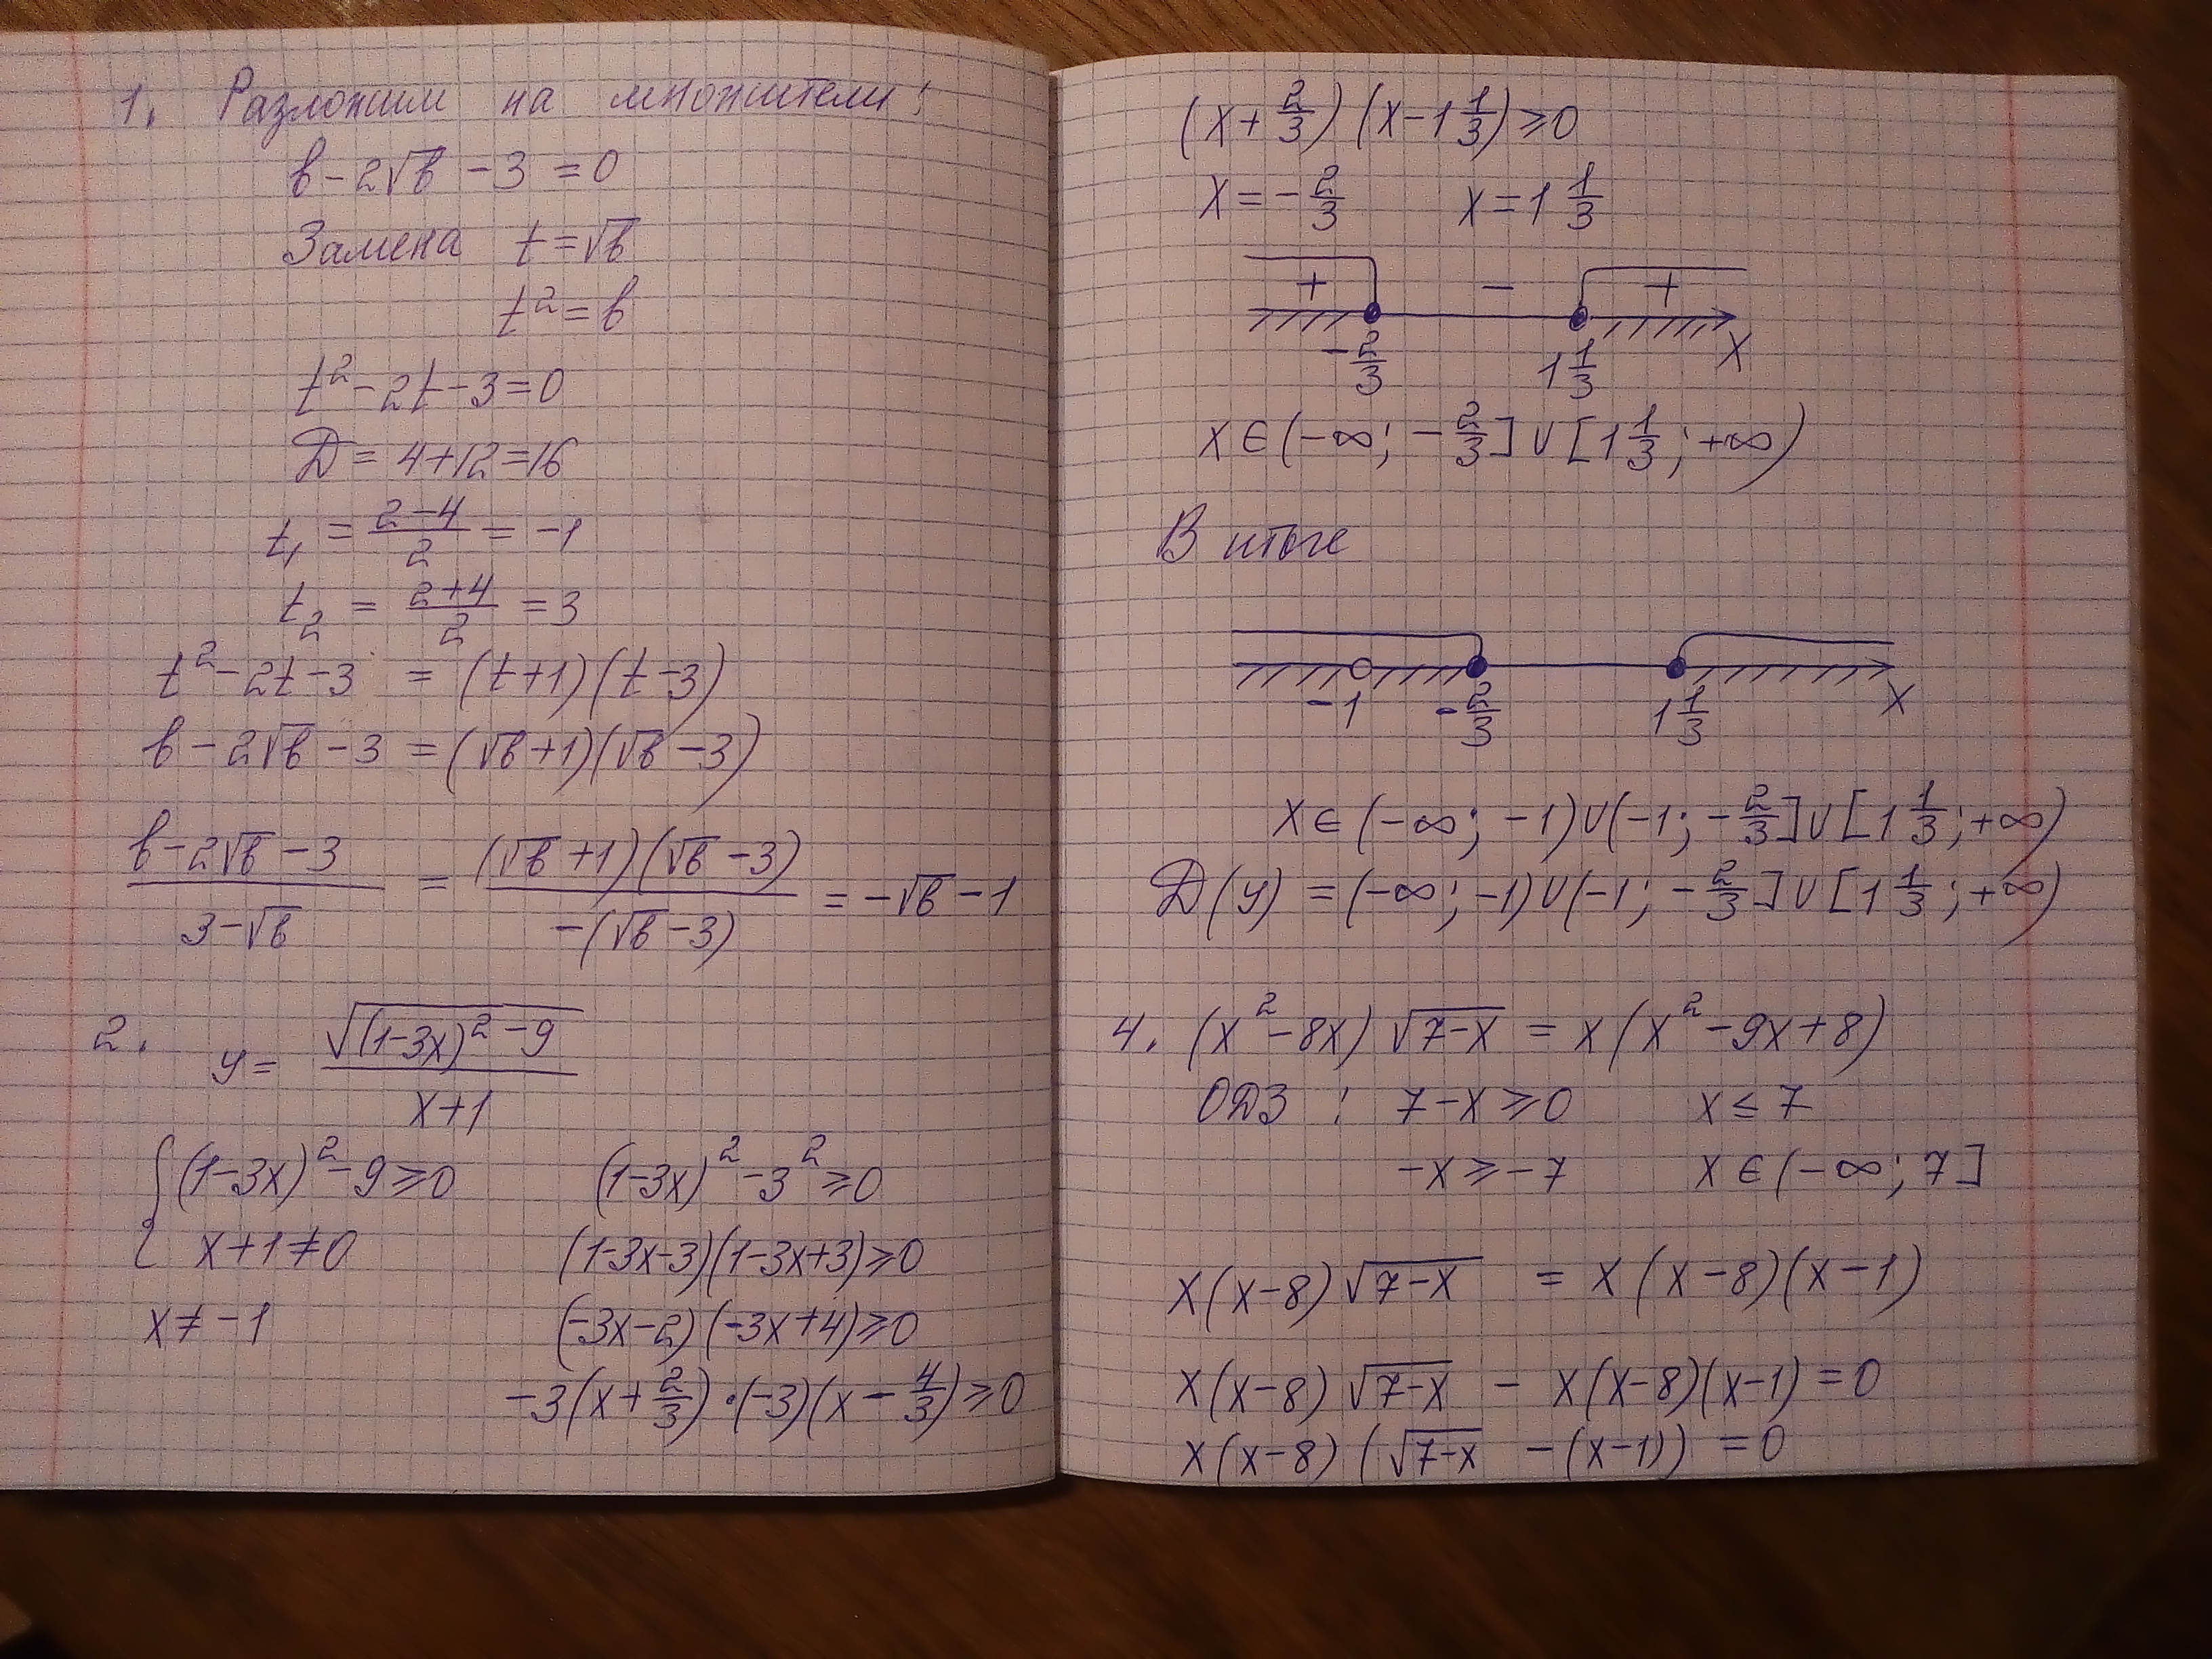 1. Разложим на множители:
в - 2√в - 3 = 0
Замена t = √в
t² = в
t² - 2t - 3 = 0
D = 4 + 12 = 16
t₁ = (2-4)/2 = -1
t₂ = (2+4)/2 = 3
t² - 2t - 3 = (t+1)(t-3)
в - 2√в - 3 = (√в+1)(√в-3)
(в - 2√в - 3)/(3-√в) = ((√в+1)(√в-3))/(-(√в-3)) = -√в - 1
2. y = √((1-3x)² - 9)/(x+1)
{ (1-3x)² - 9 ≥ 0
x+1 ≠ 0
x ≠ -1
(1-3x)² - 3² ≥ 0
(1-3x-3)(1-3x+3) ≥ 0
(-3x-2)(-3x+4) ≥ 0
-3(x + 2/3)·(-3)(x - 4/3) ≥ 0
(x + 2/3)(x - 1 1/3) ≥ 0
x = -2/3 x = 1 1/3
+ - +
-2/3 1 1/3 x
x ∈ (-∞; -2/3] ∪ [1 1/3; +∞)
В итоге
-1 -2/3 1 1/3 x
x ∈ (-∞; -1) ∪ (-1; -2/3] ∪ [1 1/3; +∞)
D(y) = (-∞; -1) ∪ (-1; -2/3] ∪ [1 1/3; +∞)
4. (x² - 8x)√(7-x) = x(x² - 9x + 8)
ОДЗ: 7-x ≥ 0 x ≤ 7
-x ≥ -7 x ∈ (-∞; 7]
x(x-8)√(7-x) = x(x-8)(x-1)
x(x-8)√(7-x) - x(x-8)(x-1) = 0
x(x-8)(√(7-x) - (x-1)) = 0